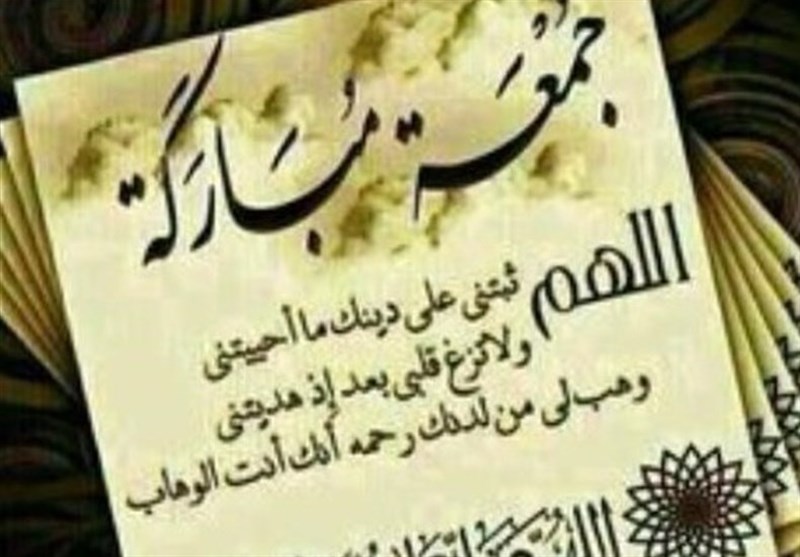 جُمُعَة مُبَارَكَة
اللهم ثبتنى على دينك ما أحييتنى
ولاتزغ قلبى بعد إذ هديتنى
وهب لى من لدنك رحمه أنك أنت الوهاب